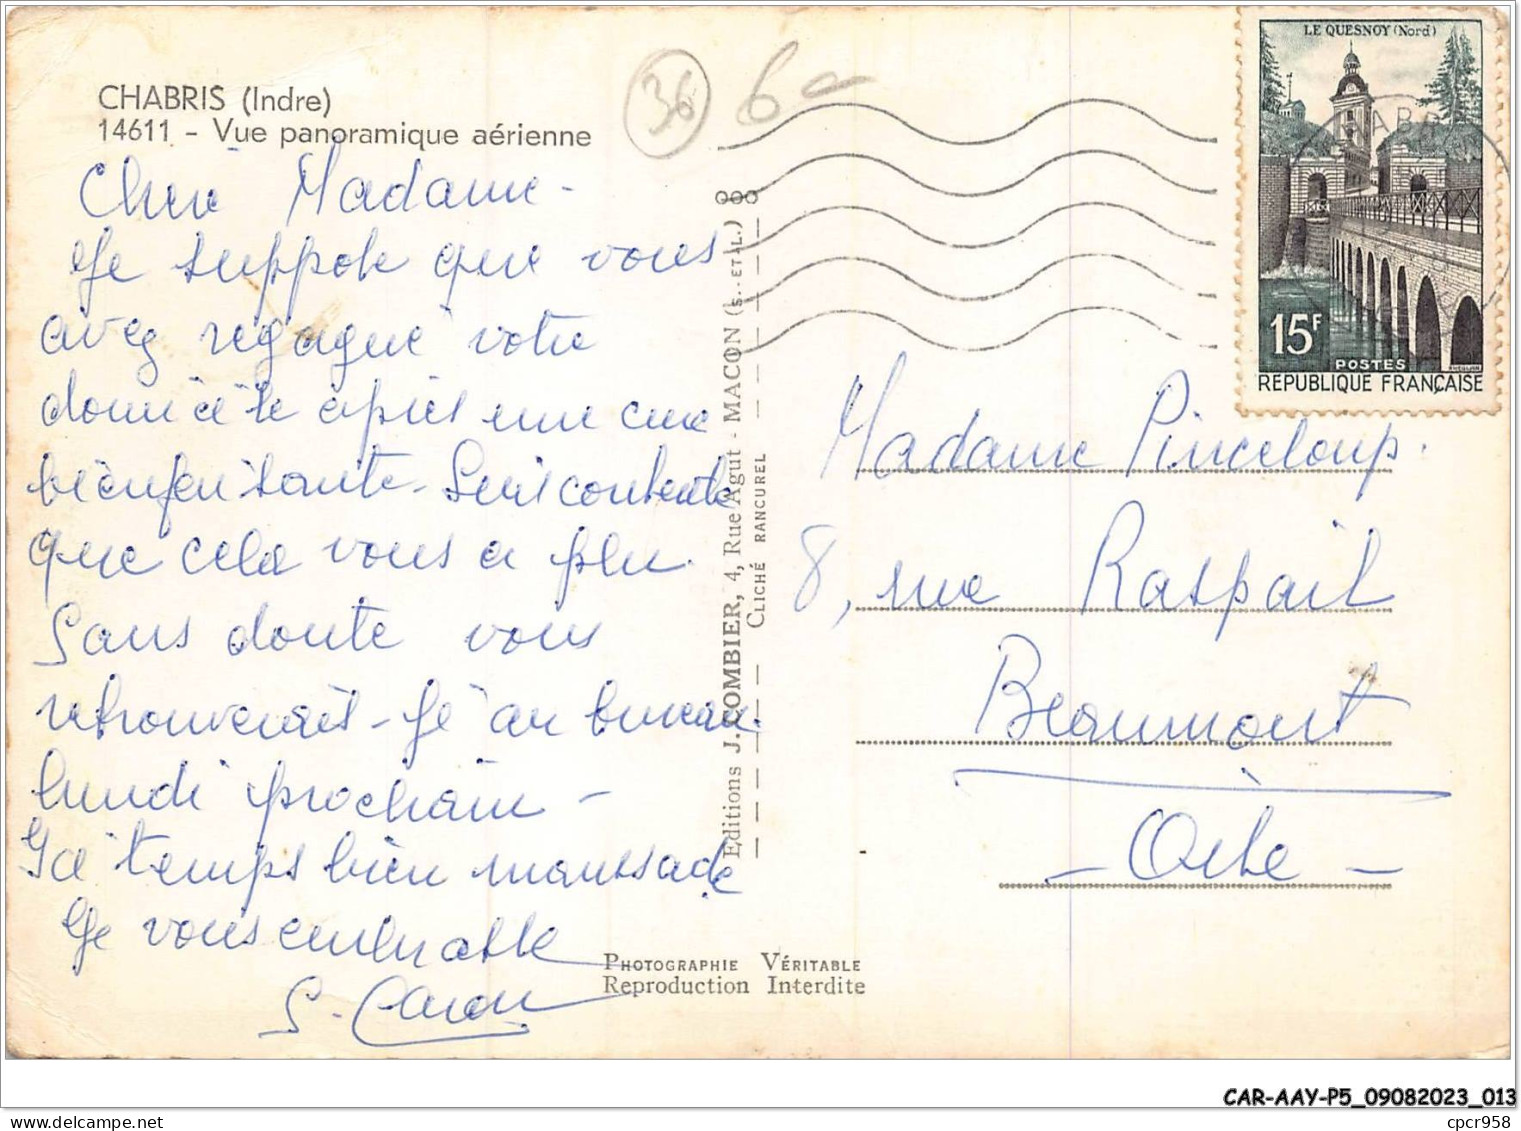 CHABRIS (Indre)
14611 - Vue panoramique aérienne
36
6-
Chère Madame -
Je suppose que vous
avez regagné votre
domicile après une cure
bienfaisante - Suis contente
que cela vous a plu.
Sans doute vous
retrouverais-je au bureau
lundi prochain -
Ici temps bien maussade
Je vous embrasse
S. Caron
Editions J. COMBIER, 4, Rue Agut - MACON (S.-ET-L.)
CLICHÉ RANCUREL
PHOTOGRAPHIE VÉRITABLE
Reproduction Interdite
LE QUESNOY (Nord)
CHABRIS
15F
POSTES
RÉPUBLIQUE FRANÇAISE
Madame Pinceloup.
8, rue Raspail
Beaumont
- Oise -
CAR-AAY-P5_09082023_013
cpcr958